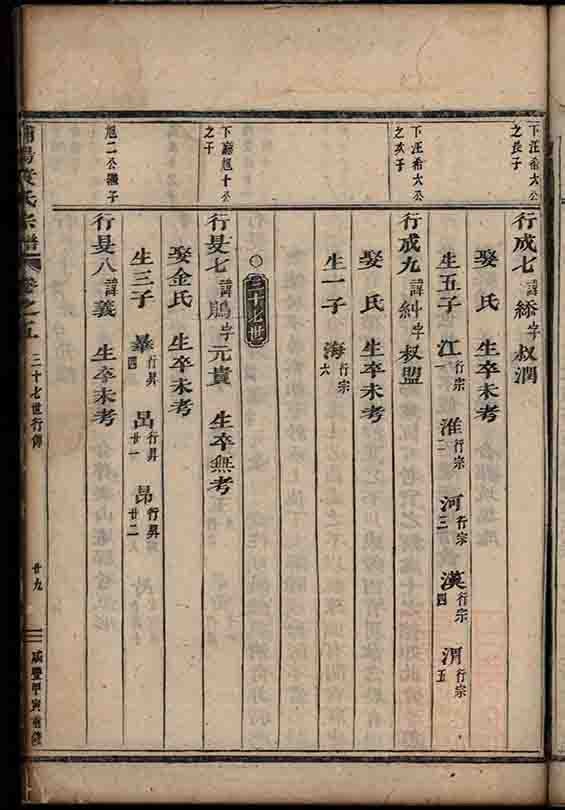 下汪希六公
之長子
行成七諱字叔潤
娶 氏 生卒未考
生五子 江行宗一 淮行宗二 河行宗三 漢行宗四 渭行宗五
下汪希六公
之次子
行成九諱糾字叔盟
娶 氏 生卒未考
生一子 海行宗六
三十七世
下廟旭十公
之子
行旻七諱字元貴 生卒無考
娶金氏 生卒未考
生三子 行昇四 昌行昇廿一 昂行昇廿二
旭二公繼子
行旻八諱義 生卒未考
氏宗譜 卷之五 三十七世行傳 廿九 咸豐甲寅重修